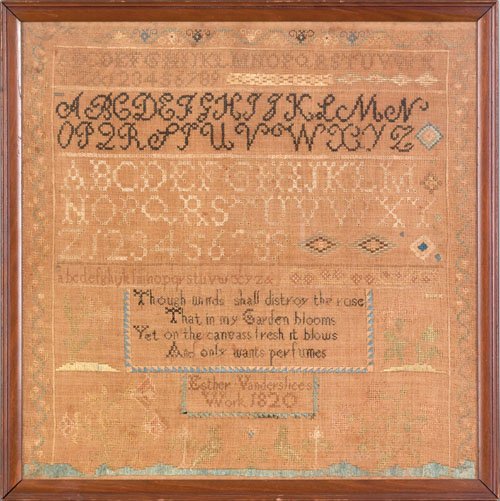 ABCDEFGHIJKLMNOPQRSTUVWX
123456789
ABCDEFGHIJKLMN
OPQRSTUVWXYZ
ABCDEFGHIJKLM
NOPQRSTUVWXY
Z123456789
abcdefghijklmnopqrstuvwxyz&
Though winds shall distroy the rose
That in my Garden blooms
Yet on the canvass fresh it blows
And only wants perfumes
Esther Vanderslices
Work 1820